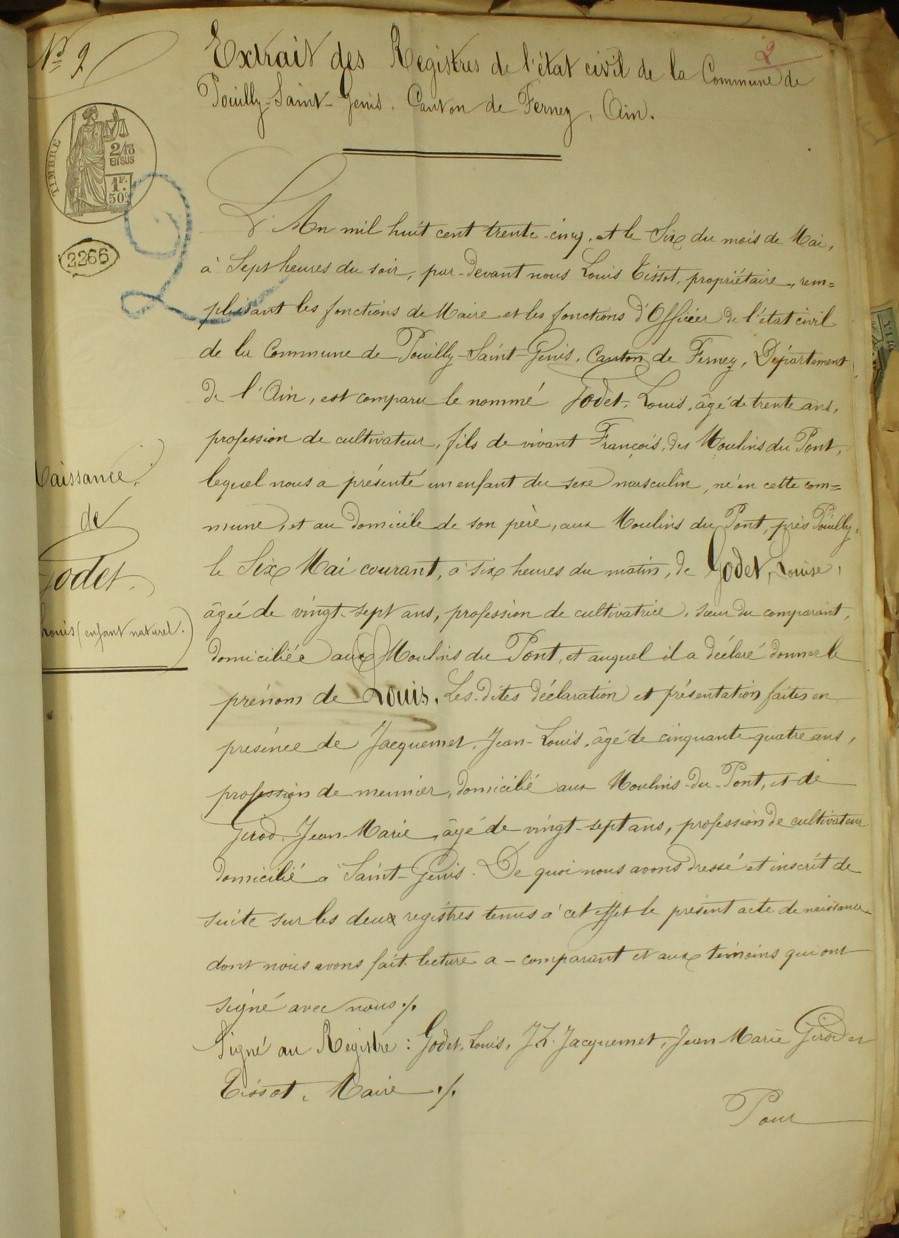 N° 2
2
Extrait des Registres de l'état civil de la Commune de
Pouilly-Saint-Genis. Canton de Ferney, Ain.
TIMBRE
2/10
EN SUS
1F.
50C
2266
2
L'An mil huit cent trente-cinq, et le Six du mois de Mai,
à Sept heures du soir, par-devant nous Louis Tissot, propriétaire, rem=
plissant les fonctions de Maire et les fonctions d'Officier de l'état civil
de la Commune de Pouilly-Saint-Genis, Canton de Ferney, Département
de l'Ain, est comparu le nommé Godet, Louis, âgé de trente ans,
profession de cultivateur, fils de vivant François, des Moulins du Pont,
lequel nous a présenté un enfant du sexe masculin, né en cette com=
mune, et au domicile de son père, aux Moulins du Pont, près Pouilly,
le Six Mai courant, à six heures du matin, de Godet, Louise,
âgée de vingt-sept ans, profession de cultivatrice, sœur du comparant,
domiciliée aux Moulins du Pont, et auquel il a déclaré donner le
prénom de Louis. Les-dites déclaration et présentation faites en
présence de Jacquemet, Jean-Louis, âgé de cinquante quatre ans,
profession de meunier, domicilié aux Moulins-du-Pont, et de
Girod, Jean-Marie, âgé de vingt-sept ans, profession de cultivateur
domicilié à Saint-Genis. De quoi nous avons dressé et inscrit de
suite sur les deux registres tenus à cet effet le présent acte de naissance
dont nous avons fait lecture a - comparant et aux témoins qui ont
signé avec nous ./.
Signé au Registre : Godet, Louis, J.L. Jacquemet, Jean Marie Girod et
Tissot, Maire ./.
Pour
Naissance
de
Godet
Louis (enfant naturel.)